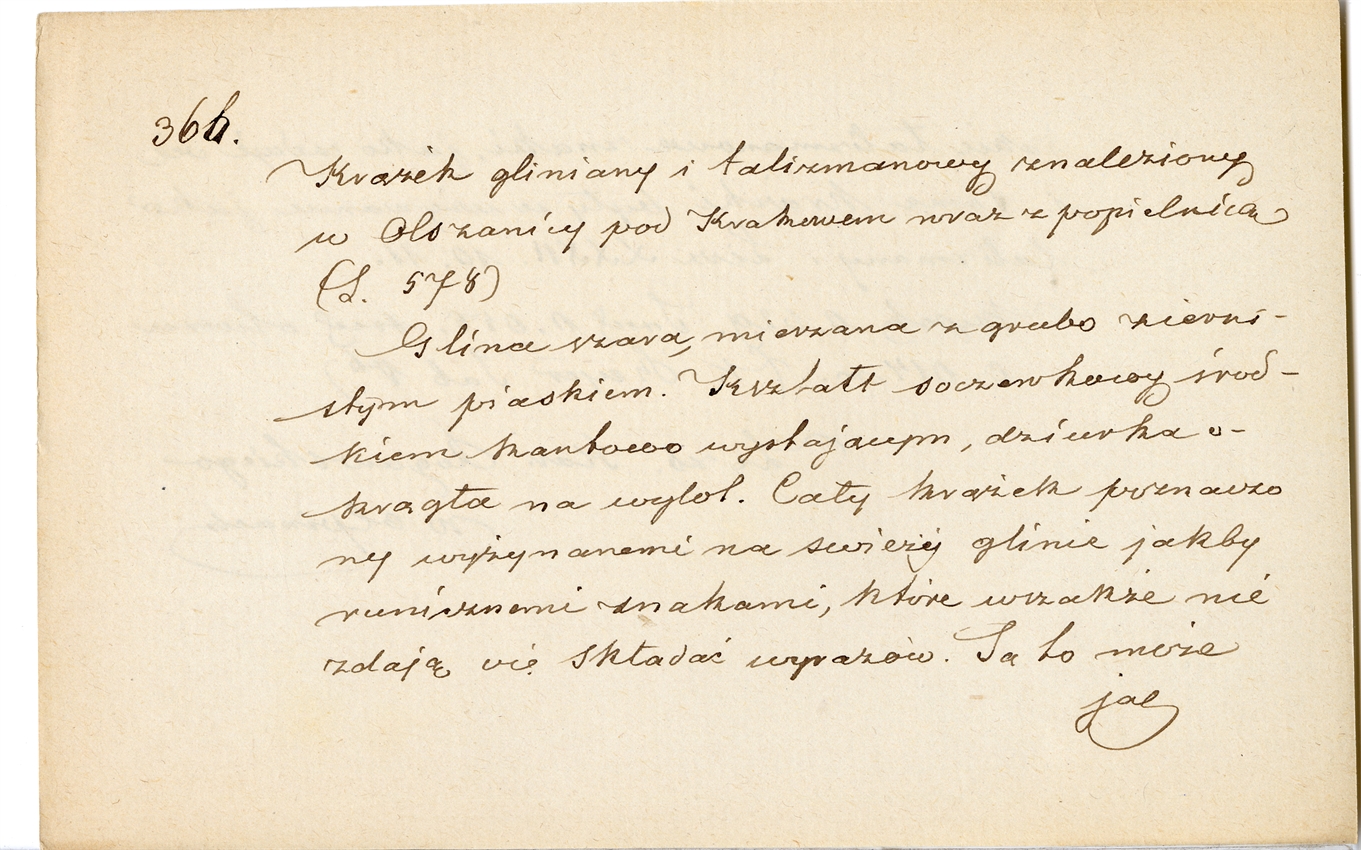 36h.
Krążek gliniany i talizmanowy znaleziony
w Olszanicy pod Krakowem wraz z popielnicą
(L. 578)
Glina szara, mierzana z grubo zierni-
stym piaskiem. Kształt soczewkowy środ-
kiem kantowo wystającym, dziurka o-
krągła na wylot. Cały krążek poznaczo
ny wyżynanemi na swieżej glinie jakby
runicznemi znakami, które wszakże nie
zdają się składać wyrazów. Są to może
jac